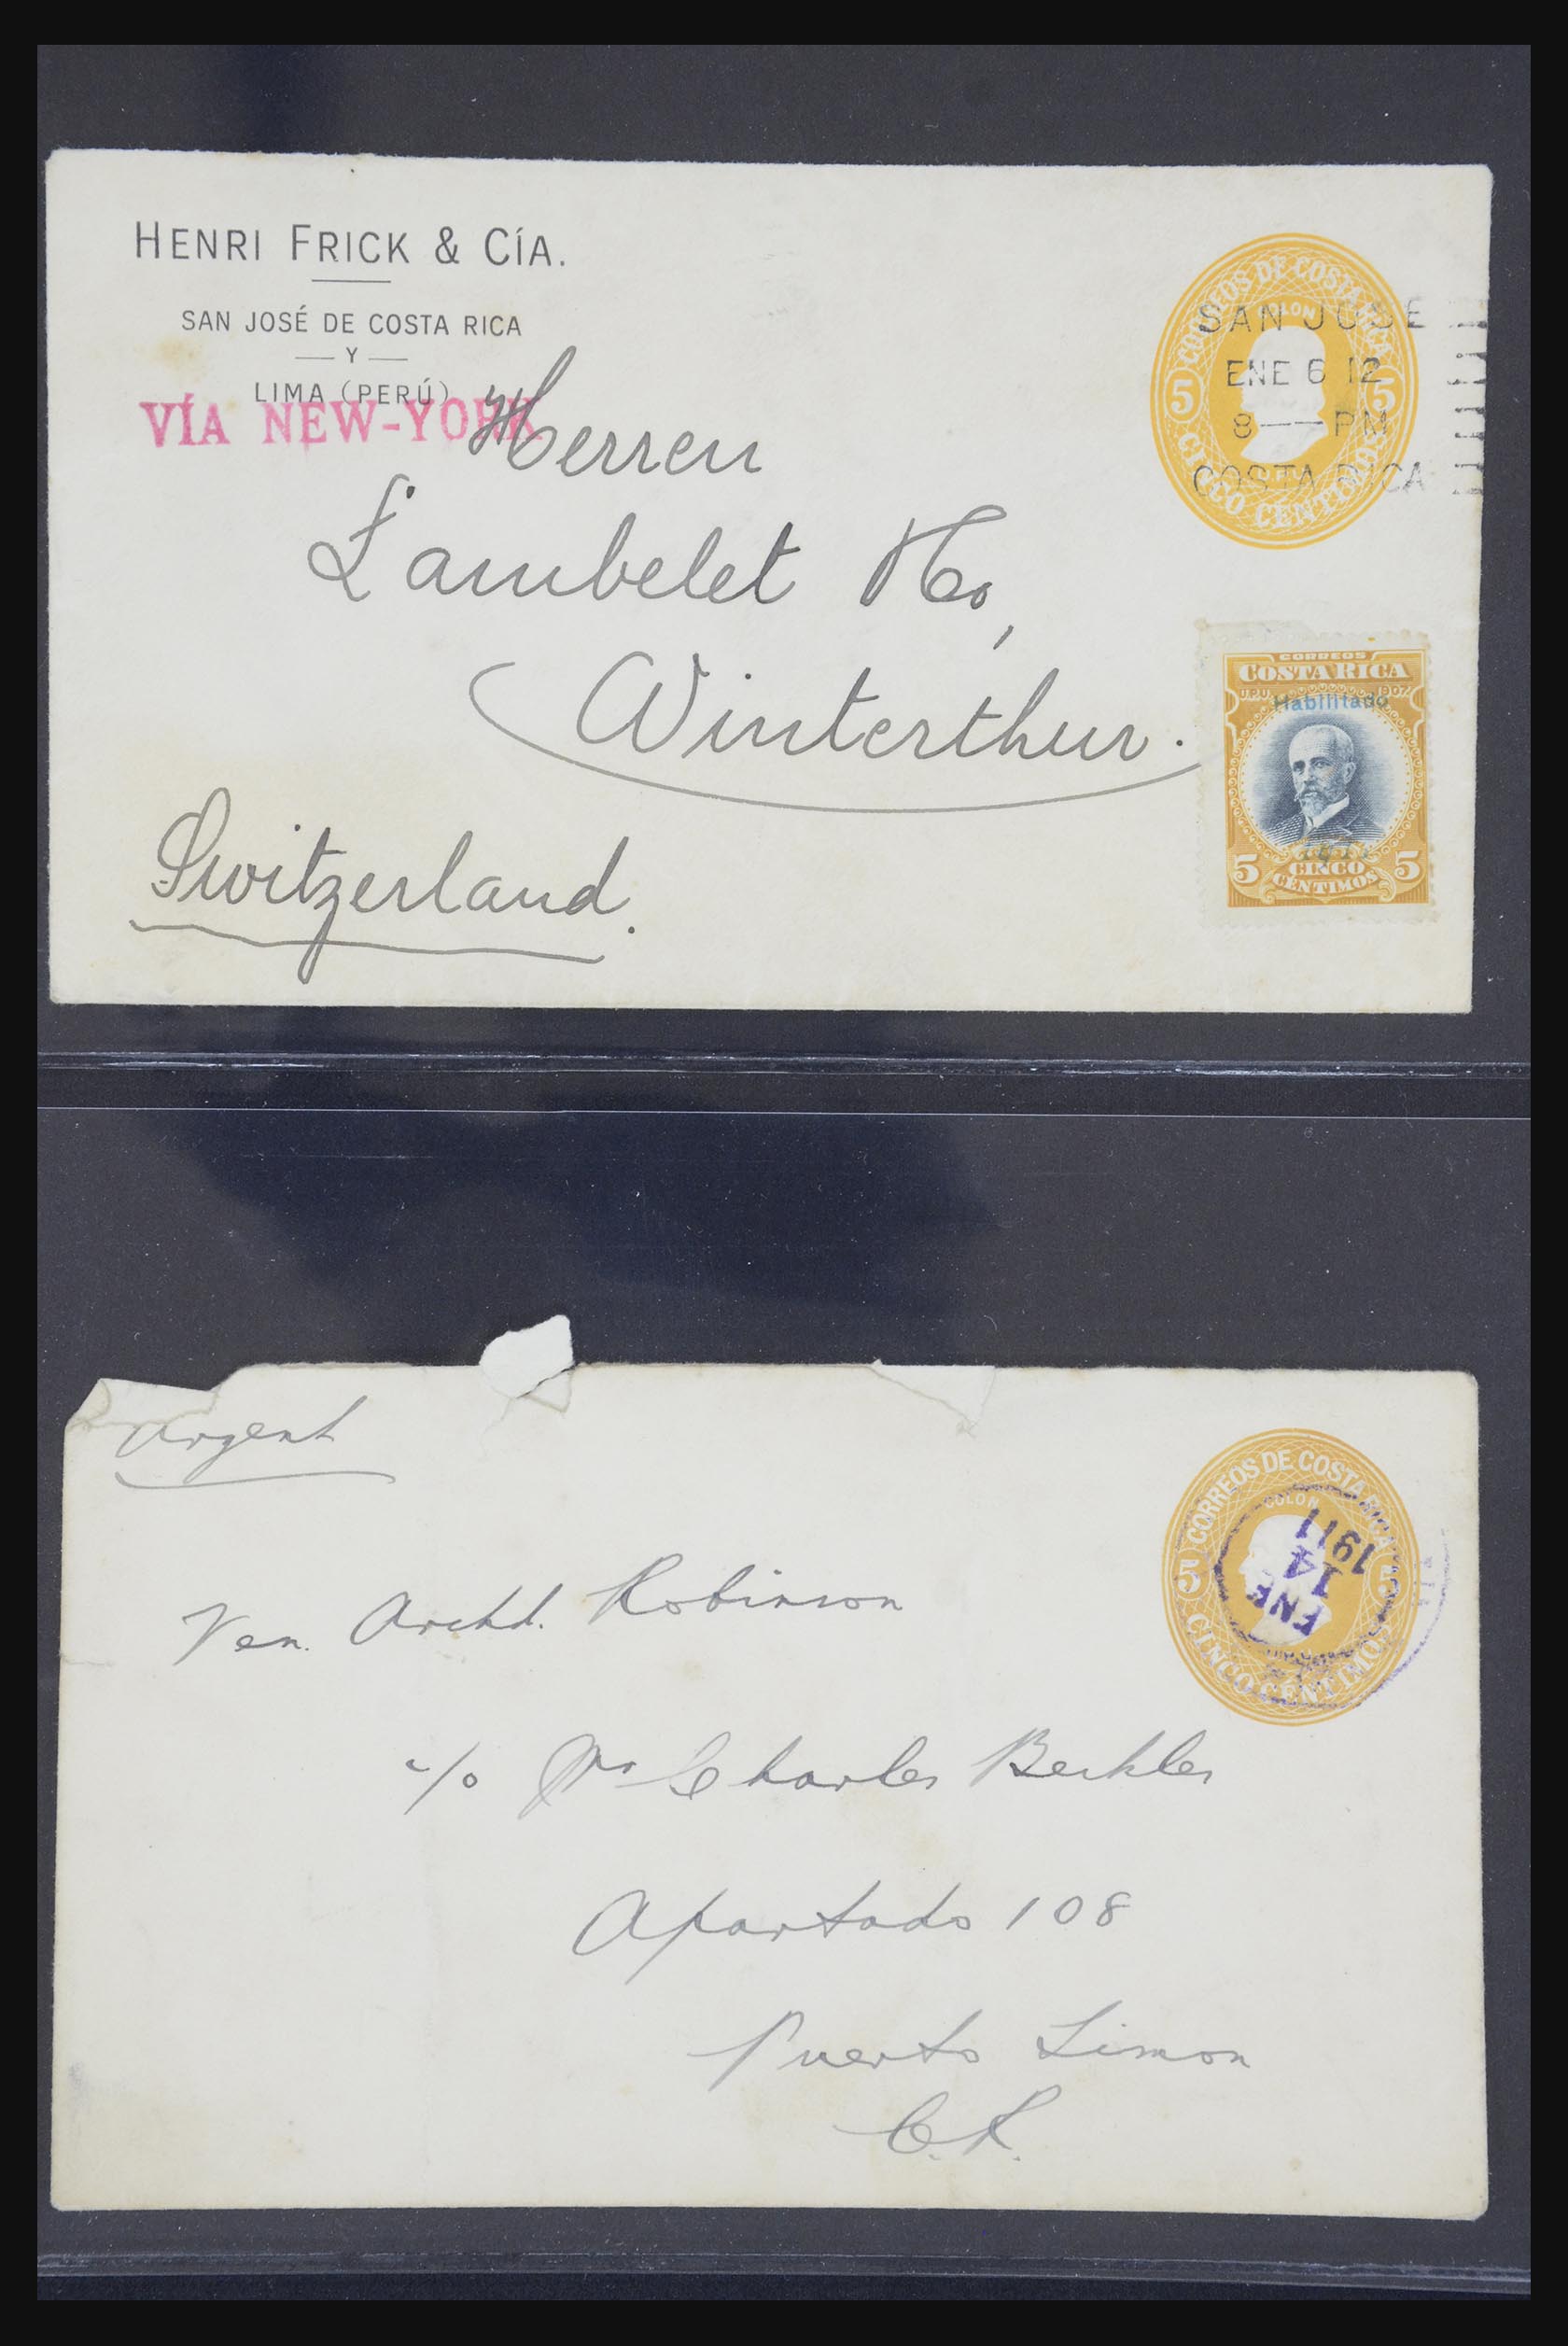 HENRI FRICK & CÍA.
SAN JOSÉ DE COSTA RICA
Y
LIMA (PERÚ)
VÍA NEW-YORK
CORREOS DE COSTA RICA
COLON
5 5
CINCO CENTIMOS
SAN JOSE
ENE 6 12
8 — PM
COSTA RICA
Herren
Lambelet & Co,
Winterthur.
Switzerland.
CORREOS
COSTA RICA
U.P.U. 1907
Habilitado
1911
5 CINCO 5
CENTIMOS
Urgent
CORREOS DE COSTA RICA
COLON
5 5
CINCO CENTIMOS
ENE
14
1911
Ven. Archd. Robinson
c/o Mr Charles
Apartado 108
Puerto Limon
C.R.